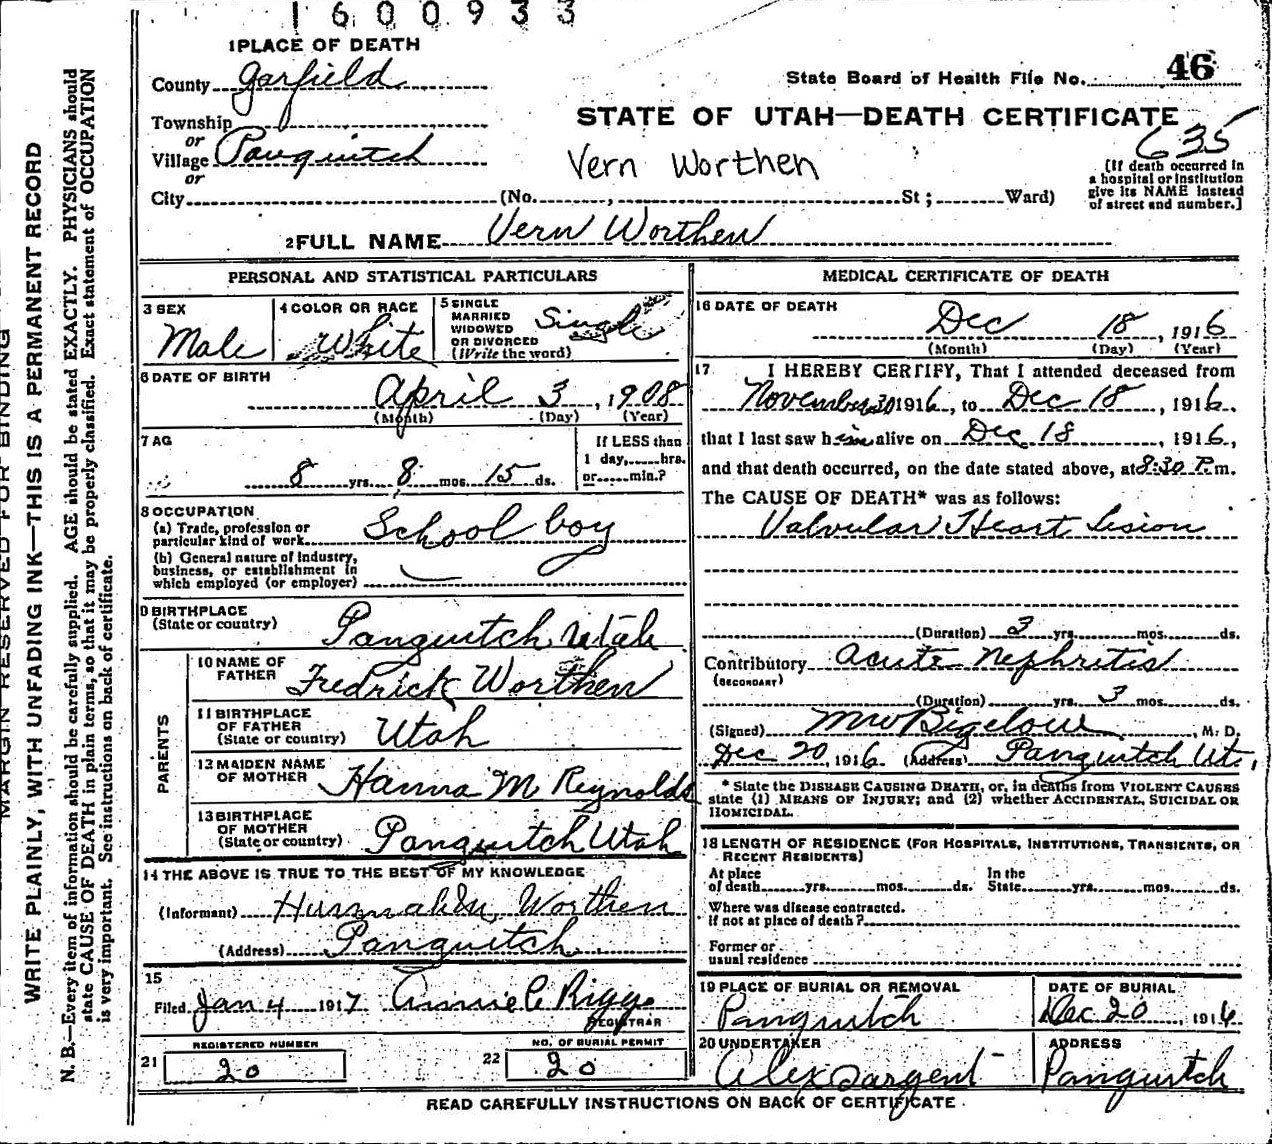 1600933
1 PLACE OF DEATH
County Garfield
State Board of Health File No. 46
Township
STATE OF UTAH—DEATH CERTIFICATE
635
or
Village Panguitch
Vern Worthen
or
(If death occurred in
a hospital or institution
give its NAME instead
of street and number.]
City (No. , St; Ward)
2 FULL NAME Vern Worthen
PERSONAL AND STATISTICAL PARTICULARS
3 SEX
Male
4 COLOR OR RACE
White
5 SINGLE
MARRIED
WIDOWED
OR DIVORCED
(Write the word)
Single
6 DATE OF BIRTH
April 3, 1908
(Month) (Day) (Year)
7 AG
8 yrs. 8 mos. 15 ds.
If LESS than
1 day, hrs.
or min.?
8 OCCUPATION
(a) Trade, profession or
particular kind of work School boy
(b) General nature of industry,
business, or establishment in
which employed (or employer)
9 BIRTHPLACE
(State or country) Panguitch Utah
PARENTS
10 NAME OF
FATHER Fredrick Worthen
11 BIRTHPLACE
OF FATHER
(State or country) Utah
12 MAIDEN NAME
OF MOTHER Hanna M Reynolds
13 BIRTHPLACE
OF MOTHER
(State or country) Panguitch Utah
14 THE ABOVE IS TRUE TO THE BEST OF MY KNOWLEDGE
(Informant) Worthen
(Address) Panguitch
15
Filed Jan 4 1917 Annie C Riggs
REGISTRAR
REGISTERED NUMBER
21 20
NO. OF BURIAL PERMIT
22 20
MEDICAL CERTIFICATE OF DEATH
16 DATE OF DEATH
Dec 18, 1916
(Month) (Day) (Year)
17 I HEREBY CERTIFY, That I attended deceased from
November 30 1916, to Dec 18, 1916,
that I last saw him alive on Dec 18, 1916,
and that death occurred, on the date stated above, at 8:30 P.m.
The CAUSE OF DEATH* was as follows:
Valvular Heart Lision
(Duration) 3 yrs. mos. ds.
Contributory Acute Nephritis
(SECONDARY)
(Duration) yrs. 3 mos. ds.
(Signed) MW Bigelow, M. D.
Dec 20, 1916 (Address) Panguitch Ut,
* State the DISEASE CAUSING DEATH, or, in deaths from VIOLENT CAUSES
state (1) MEANS OF INJURY; and (2) whether ACCIDENTAL, SUICIDAL OR
HOMICIDAL.
18 LENGTH OF RESIDENCE (FOR HOSPITALS, INSTITUTIONS, TRANSIENTS, OR
RECENT RESIDENTS)
At place
of death yrs. mos. ds.
In the
State yrs. mos. ds.
Where was disease contracted.
If not at place of death?
Former or
usual residence
19 PLACE OF BURIAL OR REMOVAL
Panguitch
DATE OF BURIAL
Dec 20, 1916
20 UNDERTAKER
Alex Sargent
ADDRESS
Panguitch
READ CAREFULLY INSTRUCTIONS ON BACK OF CERTIFICATE
MARGIN RESERVED FOR BINDING
WRITE PLAINLY, WITH UNFADING INK—THIS IS A PERMANENT RECORD
N. B.—Every item of information should be carefully supplied. AGE should be stated EXACTLY. PHYSICIANS should
state CAUSE OF DEATH in plain terms, so that it may be properly classified. Exact statement of OCCUPATION
is very important. See instructions on back of certificate.